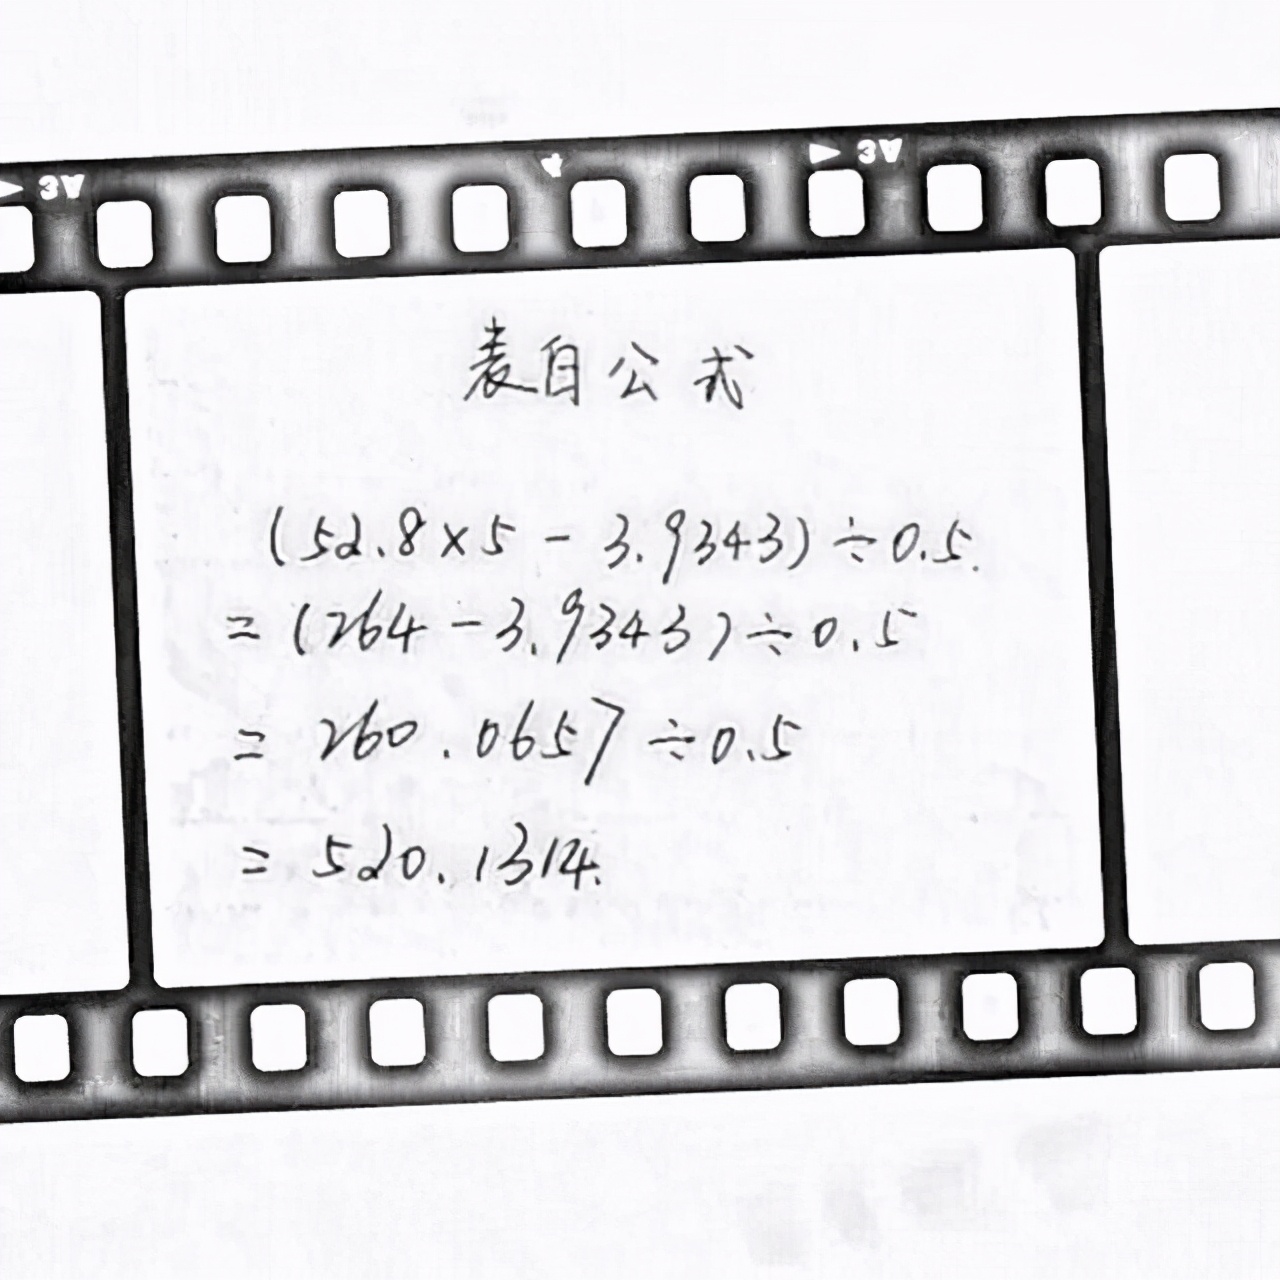 3A 4 3A
表白公式
(52.8×5-3.9343)÷0.5
=(264-3.9343)÷0.5
=260.0657÷0.5
=520.1314.